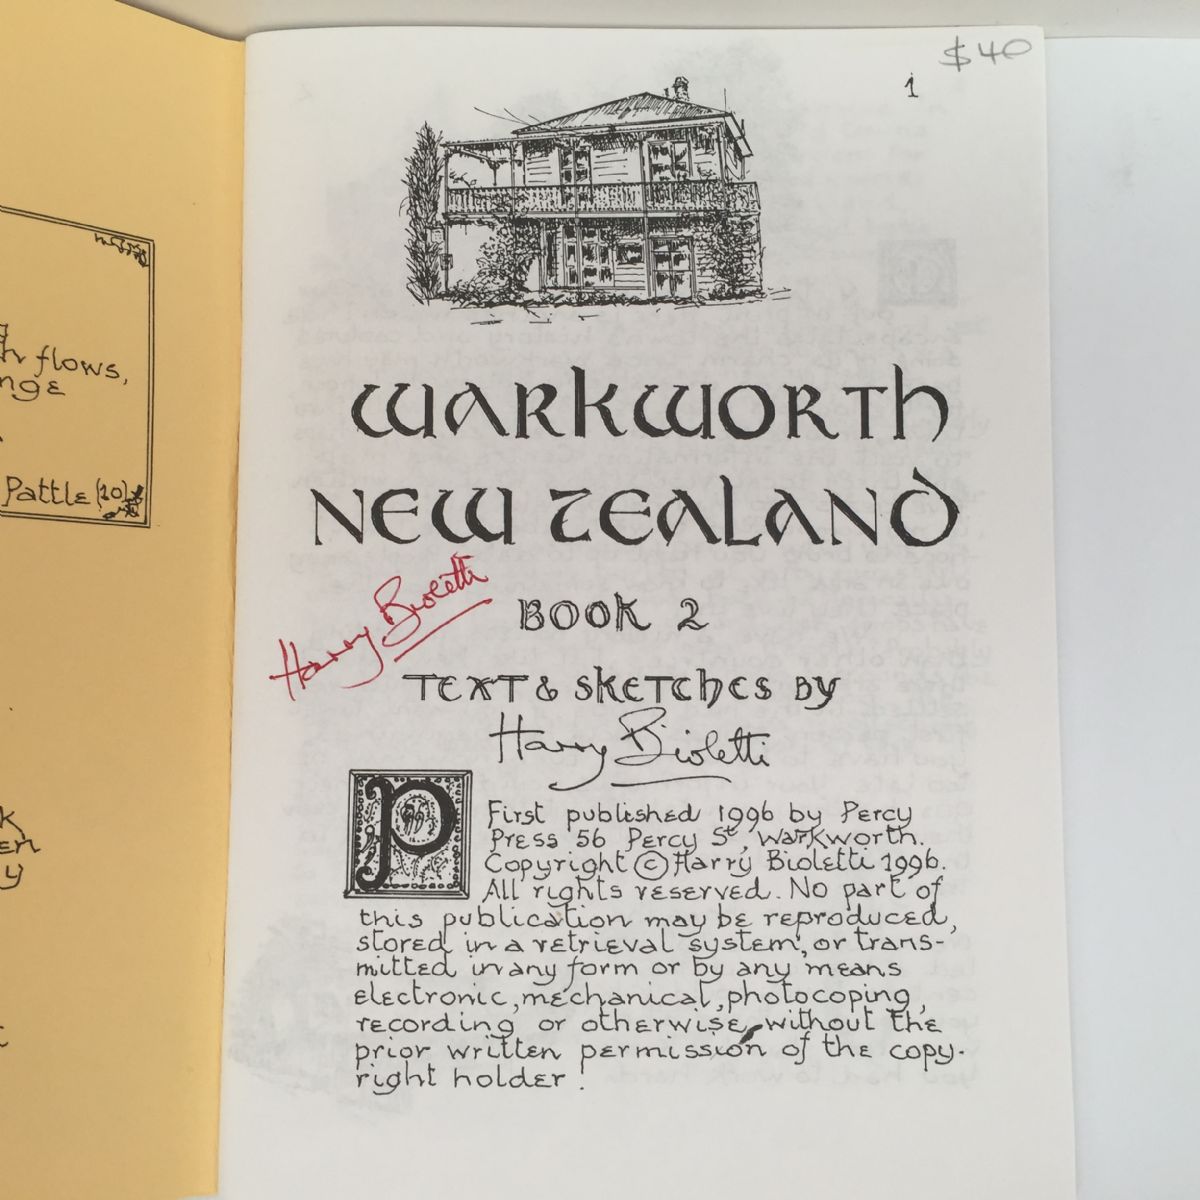 h flows,
nge
Pattle (10)
K
en
y
$40
1
WARKWORTH
NEW ZEALAND
Harry Bioletti
BOOK 2
TEXT & SKETCHES BY
Harry Bioletti
P
First published 1996 by Percy
Press 56 Percy St, Warkworth.
Copyright © Harry Bioletti 1996.
All rights reserved. No part of
this publication may be reproduced,
stored in a retrieval system, or trans-
mitted in any form or by any means
electronic, mechanical, photocoping,
recording or otherwise without the
prior written permission of the copy-
right holder.